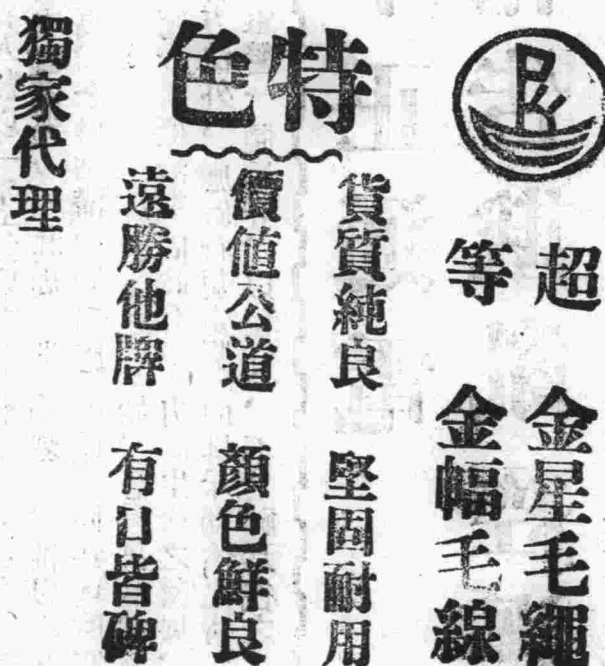 超等
金星毛繩
金幅毛線
特色
貨質純良
堅固耐用
價値公道
顏色鮮良
遠勝他牌
有口皆碑
獨家代理